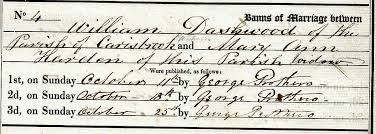 No. 4 Banns of Marriage between
William Dashwood of the
Parish of Carisbrook and Mary Ann
Harden of this Parish widow
Were published, as follows:
1st, on Sunday October 11th by George Prothero
2d, on Sunday October 18th by George Prothero
3d, on Sunday October 25th by George Prothero